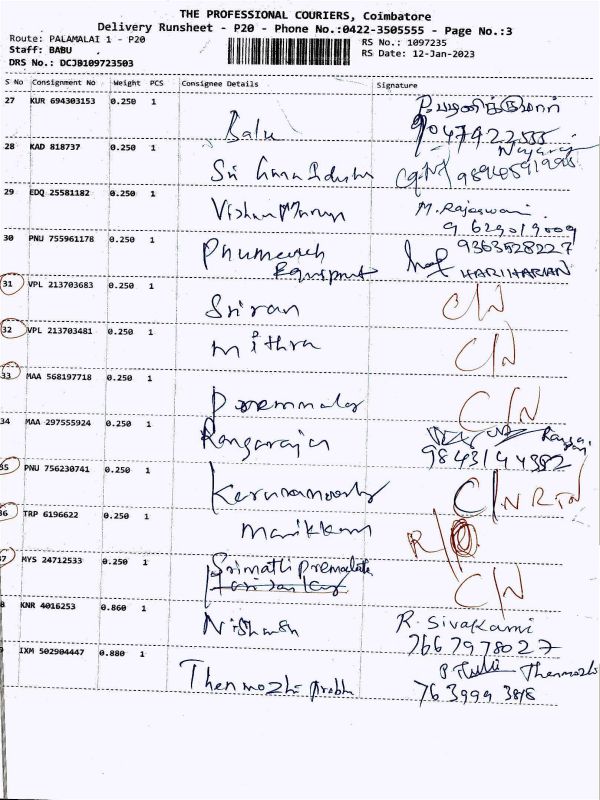 THE PROFESSIONAL COURIERS, Coimbatore
Delivery Runsheet - P20 - Phone No.:0422-3505555 - Page No.:3
Route: PALAMALAI 1 - P20
RS No.: 1097235
Staff: BABU
RS Date: 12-Jan-2023
DRS No.: DCJB109723503
S No Consignment No Weight PCS Consignee Details Signature
27 KUR 694303153 0.250 1 Balu
9047922555
28 KAD 818737 0.250 1 Sri Nagaraj
29 EDQ 25581182 0.250 1 Vishnu M. Rajeswari
9629019009
30 PNU 755961178 0.250 1 9363528227
HARIHARAN
31 VPL 213703683 0.250 1 Sriran C/N
32 VPL 213703481 0.250 1 Mithra C/N
33 MAA 568197718 0.250 1 C/N
34 MAA 297555924 0.250 1 Rangarajan
9843144382
35 PNU 756230741 0.250 1 C/N RTN
36 TRP 6196622 0.250 1 Manikkam R/O
37 MYS 24712533 0.250 1 Srimathi Premalata C/N
8 KNR 4016253 0.860 1 Nishanth R. Sivakami
7667978027
IXM 502904447 0.880 1 Thenmozhi Prabhu Thenmozhi